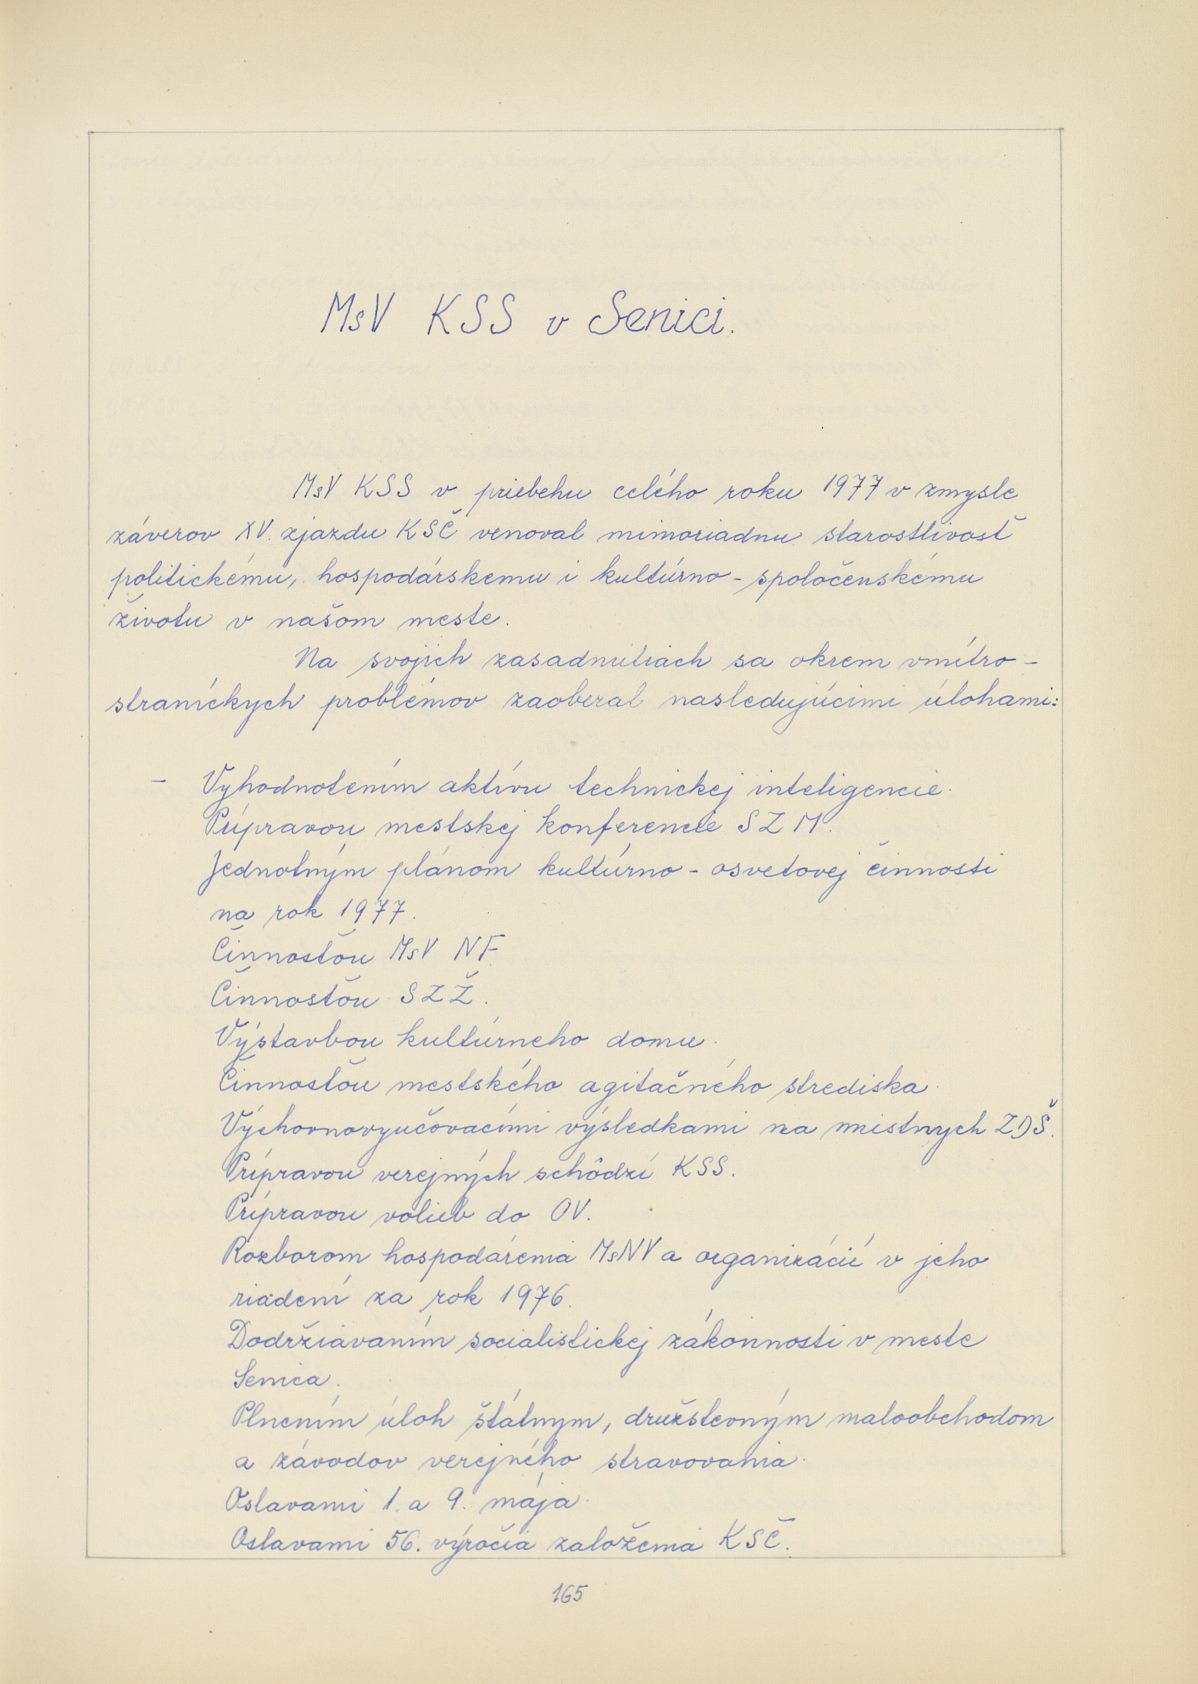 MsV KSS v Senici.
MsV KSS v priebehu celého roku 1977 v zmysle
záverov XV. zjazdu KSČ venoval mimoriadnu starostlivosť
politickému, hospodárskemu i kultúrno-spoločenskému
životu v našom meste.
Na svojich zasadnutiach sa okrem vnútro-
straníckych problémov zaoberal nasledujúcimi úlohami:
- Vyhodnotením aktívu technickej inteligencie.
Prípravou mestskej konferencie SZM.
Jednotným plánom kultúrno-osvetovej činnosti
na rok 1977.
Činnosťou MsV NF.
Činnosťou SZŽ.
Výstavbou kultúrneho domu.
Činnosťou mestského agitačného strediska.
Výchovnovyučovacími výsledkami na miestnych ZDŠ.
Prípravou verejných schôdzí KSS.
Prípravou volieb do OV.
Rozborom hospodárenia MsNV a organizácií v jeho
riadení za rok 1976.
Dodržiavaním socialistickej zákonnosti v meste
Senica.
Plnením úloh štátnym, družstevným maloobchodom
a závodov verejného stravovania.
Oslavami 1. a 9. mája.
Oslavami 56. výročia založenia KSČ.
165